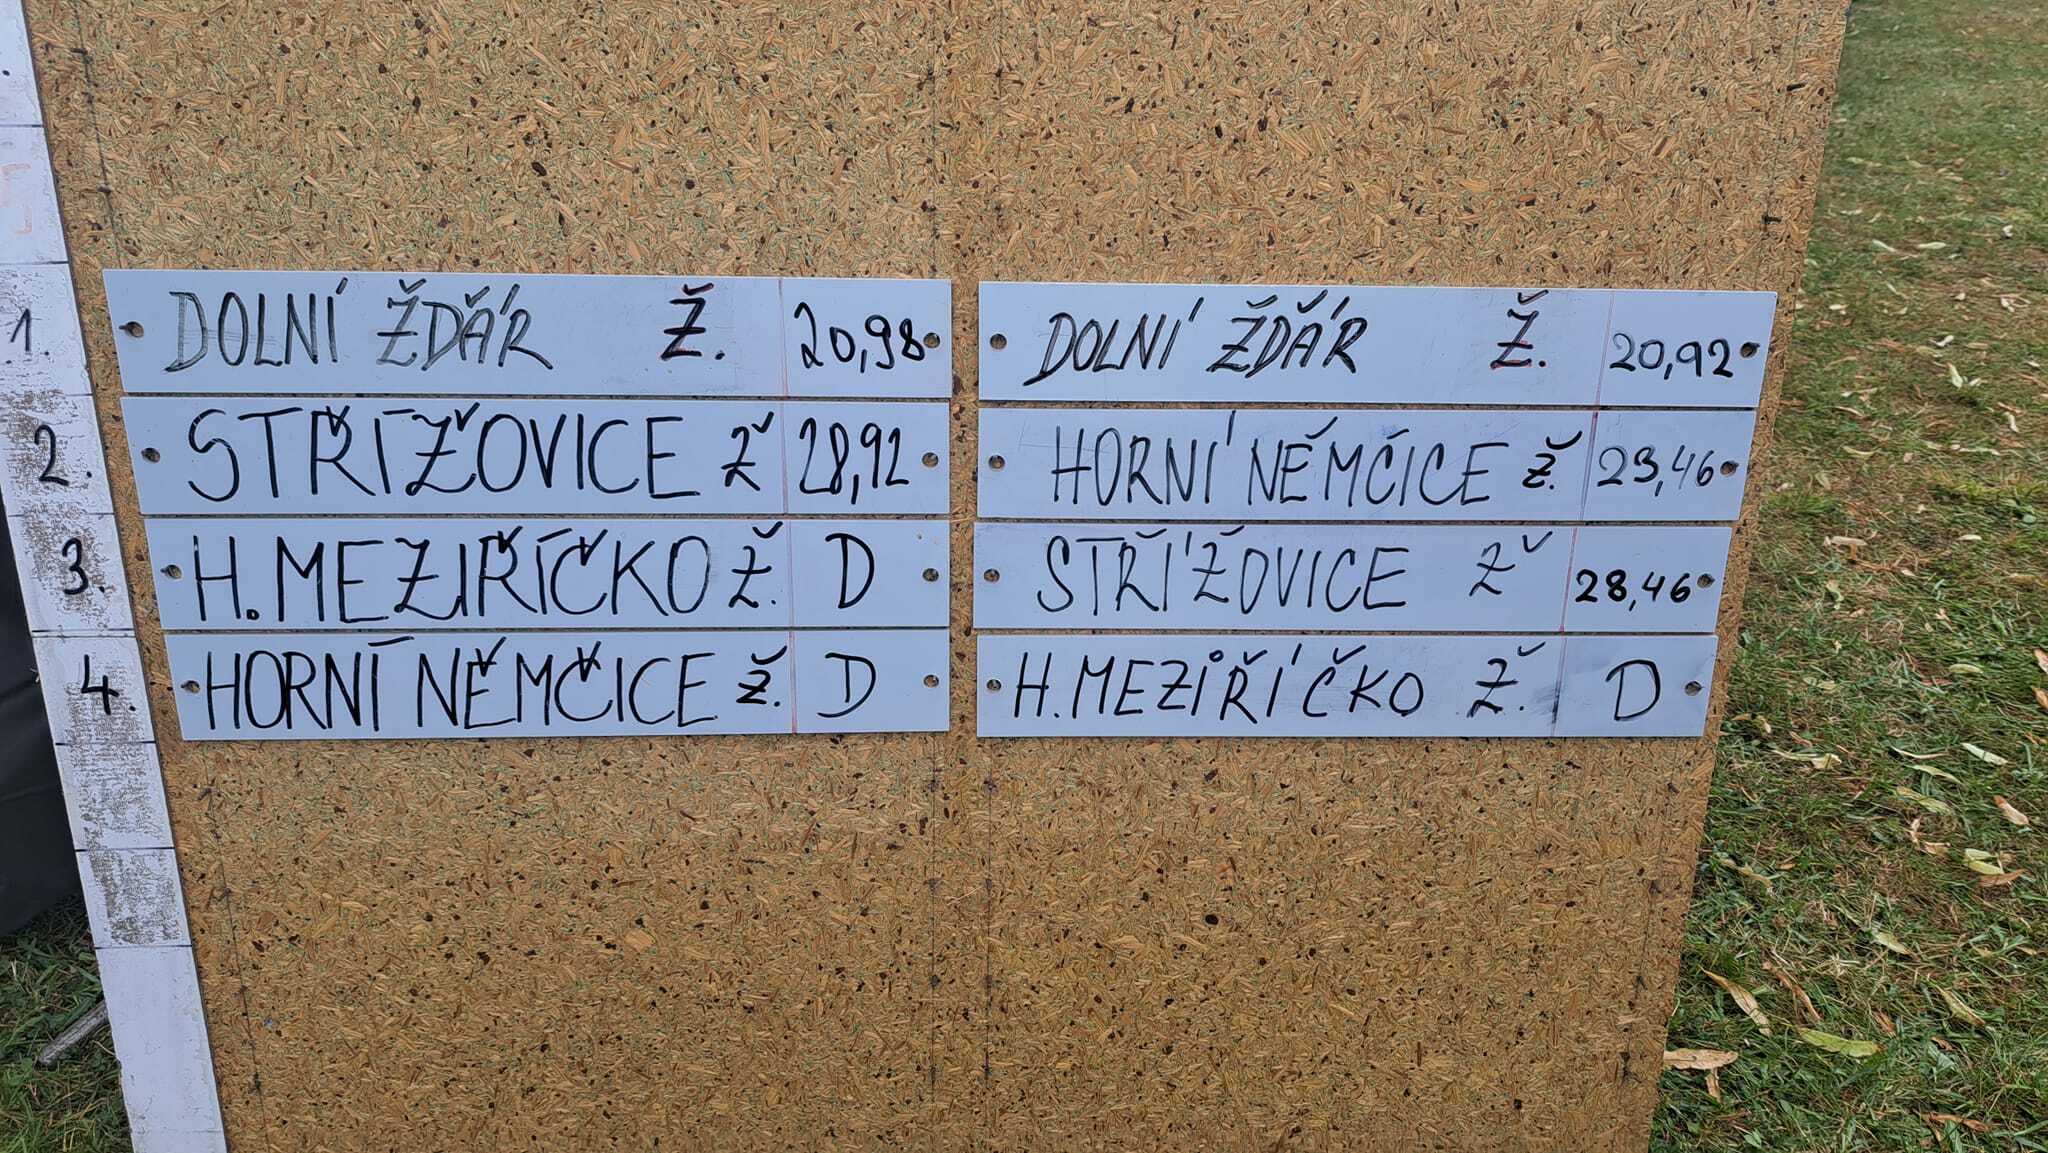 1. DOLNÍ ŽĎÁR Ž. 20,98
2. STŘÍŽOVICE Ž 28,92
3. H.MEZIŘÍČKO Ž. D
4. HORNÍ NĚMČICE Ž. D
DOLNÍ ŽĎÁR Ž. 20,92
HORNÍ NĚMČICE Ž. 23,46
STŘÍŽOVICE Ž 28,46
H.MEZIŘÍČKO Ž. D